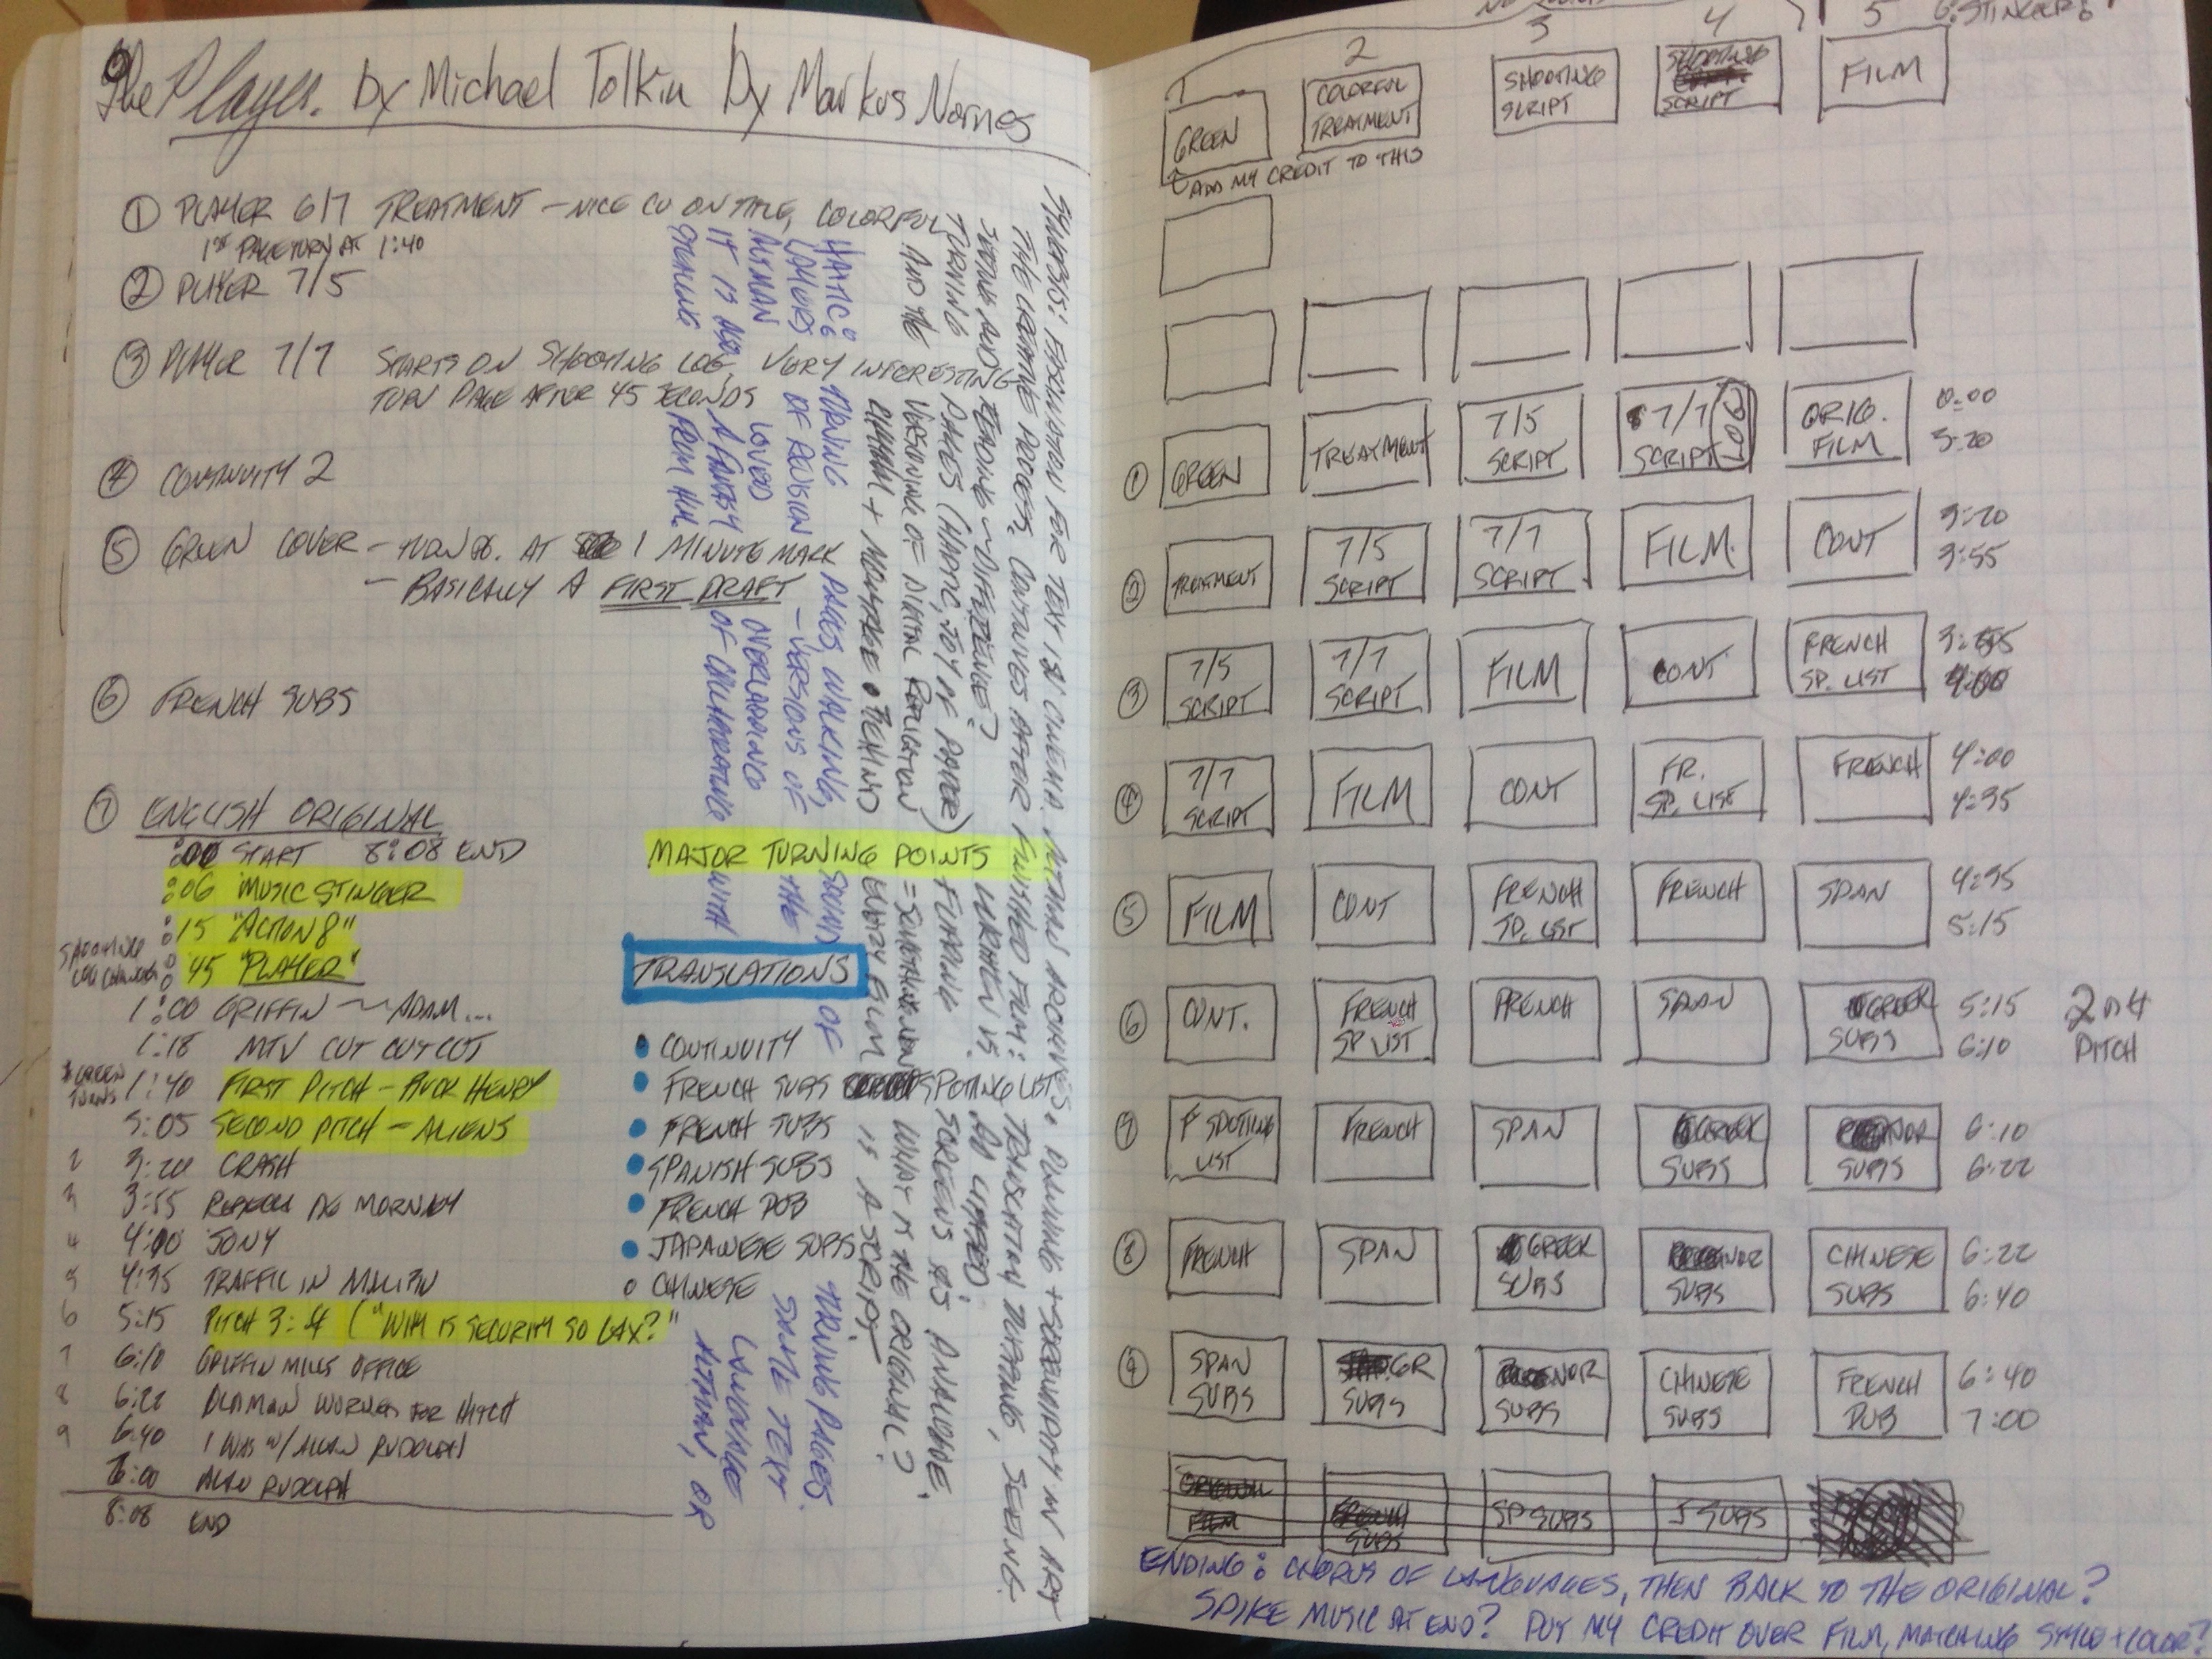 The Player. by Michael Tolkin by Markus Nornes
① PLAYER 6/7 TREATMENT - NICE CU ON TITLE, COLORFUL
1ST PAGE TURN AT 1:40
② PLAYER 7/5
③ PLAYER 7/7 STARTS ON SHOOTING LOG, VERY INTERESTING
TURN PAGE AFTER 45 SECONDS
④ CONTINUITY 2
⑤ GREEN COVER - TURN PG. AT 1 MINUTE MARK
- BASICALLY A FIRST DRAFT
⑥ FRENCH SUBS
⑦ ENGLISH ORIGINAL
:00 START 8:08 END
:06 MUSIC STINGER
:15 "ACTION 8"
SHOOTING LOG CHANGES :45 "PLAYER"
1:00 GRIFFIN ~ ADAM...
1:18 MTV CUT CUT CUT
GREEN TURNS 1:40 FIRST PITCH - BUCK HENRY
3:05 SECOND PITCH - ALIENS
2 3:20 CRASH
3 3:55 REBECCA DE MORNAY
4 4:00 SONY
5 4:35 TRAFFIC IN
6 5:15 PITCH 3: ("WHY IS SECURITY SO LAX?"
7 6:10 GRIFFIN MILLS OFFICE
8 6:22 OLD MAN WORKED FOR HITCH
9 6:40 I WAS W/ ALAN RUDOLPH
7:00 ALAN RUDOLPH
8:08 END
MAJOR TURNING POINTS
TRANSLATIONS
• CONTINUITY
• FRENCH SUBS SPOTTING LIST
• FRENCH SUBS
• SPANISH SUBS
• FRENCH DUB
• JAPANESE SUBS
○ CHINESE
SYNOPSIS: FASCINATION FOR TEXT IN CINEMA. ALTMAN ARCHIVES. RUNNING + SERENDIPITY IN ART
THE CREATIVE PROCESS CONTINUES AFTER FINISHED FILM: TRANSLATION DUBBING, SEEING.
SEEING AND READING ~ DIFFERENCE?
TURNING PAGES (HAPTIC, JOY OF PAPER)
AND THE VERSIONING OF DIGITAL REPLICATION
WHAT IS THE ORIGINAL?
IS A SCRIPT
HAPTIC: TURNING PAGES, WALKING, SOUND OF TURNING PAGES.
LAYERS OF REVISION - VERSIONS OF THE SAME TEXT
ALTMAN LOVED OVERLAPPING LANGUAGE
IT IS NOT A FANTASY OF COLLABORATING WITH ALTMAN, OR
STEALING FROM HIM.
1 2 3 4 5 6: STINGER
GREEN
COLORFUL TREATMENT
SHOOTING SCRIPT
SHOOTING SCRIPT
FILM
ADD MY CREDIT TO THIS
① GREEN TREATMENT 7/5 SCRIPT 7/7 SCRIPT LOG ORIG. FILM 0:00 3:20
② TREATMENT 7/5 SCRIPT 7/7 SCRIPT FILM. CONT 3:20 3:55
③ 7/5 SCRIPT 7/7 SCRIPT FILM CONT FRENCH SP. LIST 3:55 4:00
④ 7/7 SCRIPT FILM CONT FR. SP. LIST FRENCH 4:00 4:35
⑤ FILM CONT FRENCH SP. LIST FRENCH SPAN 4:35 5:15
⑥ CONT. FRENCH SP LIST FRENCH SPAN GREEK SUBS 5:15 6:10 2 PITCH
⑦ F SPOTTING LIST FRENCH SPAN GREEK SUBS NOR SUBS 6:10 6:22
⑧ FRENCH SPAN GREEK SUBS NOR SUBS CHINESE SUBS 6:22 6:40
⑨ SPAN SUBS GR SUBS NOR SUBS CHINESE SUBS FRENCH DUB 6:40 7:00
ORIGINAL FILM FRENCH SUBS SP SUBS J SUBS
ENDING: CHORUS OF LANGUAGES, THEN BACK TO THE ORIGINAL?
SPIKE MUSIC AT END? PUT MY CREDIT OVER FILM, MATCHING STYLE + COLOR?